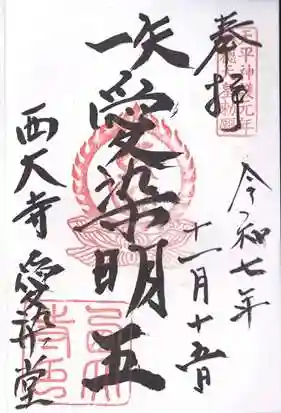 奉拝
天平神護元年
称徳天皇勅願
令和七年
十一月十五日
愛染明王
西大寺 愛染堂